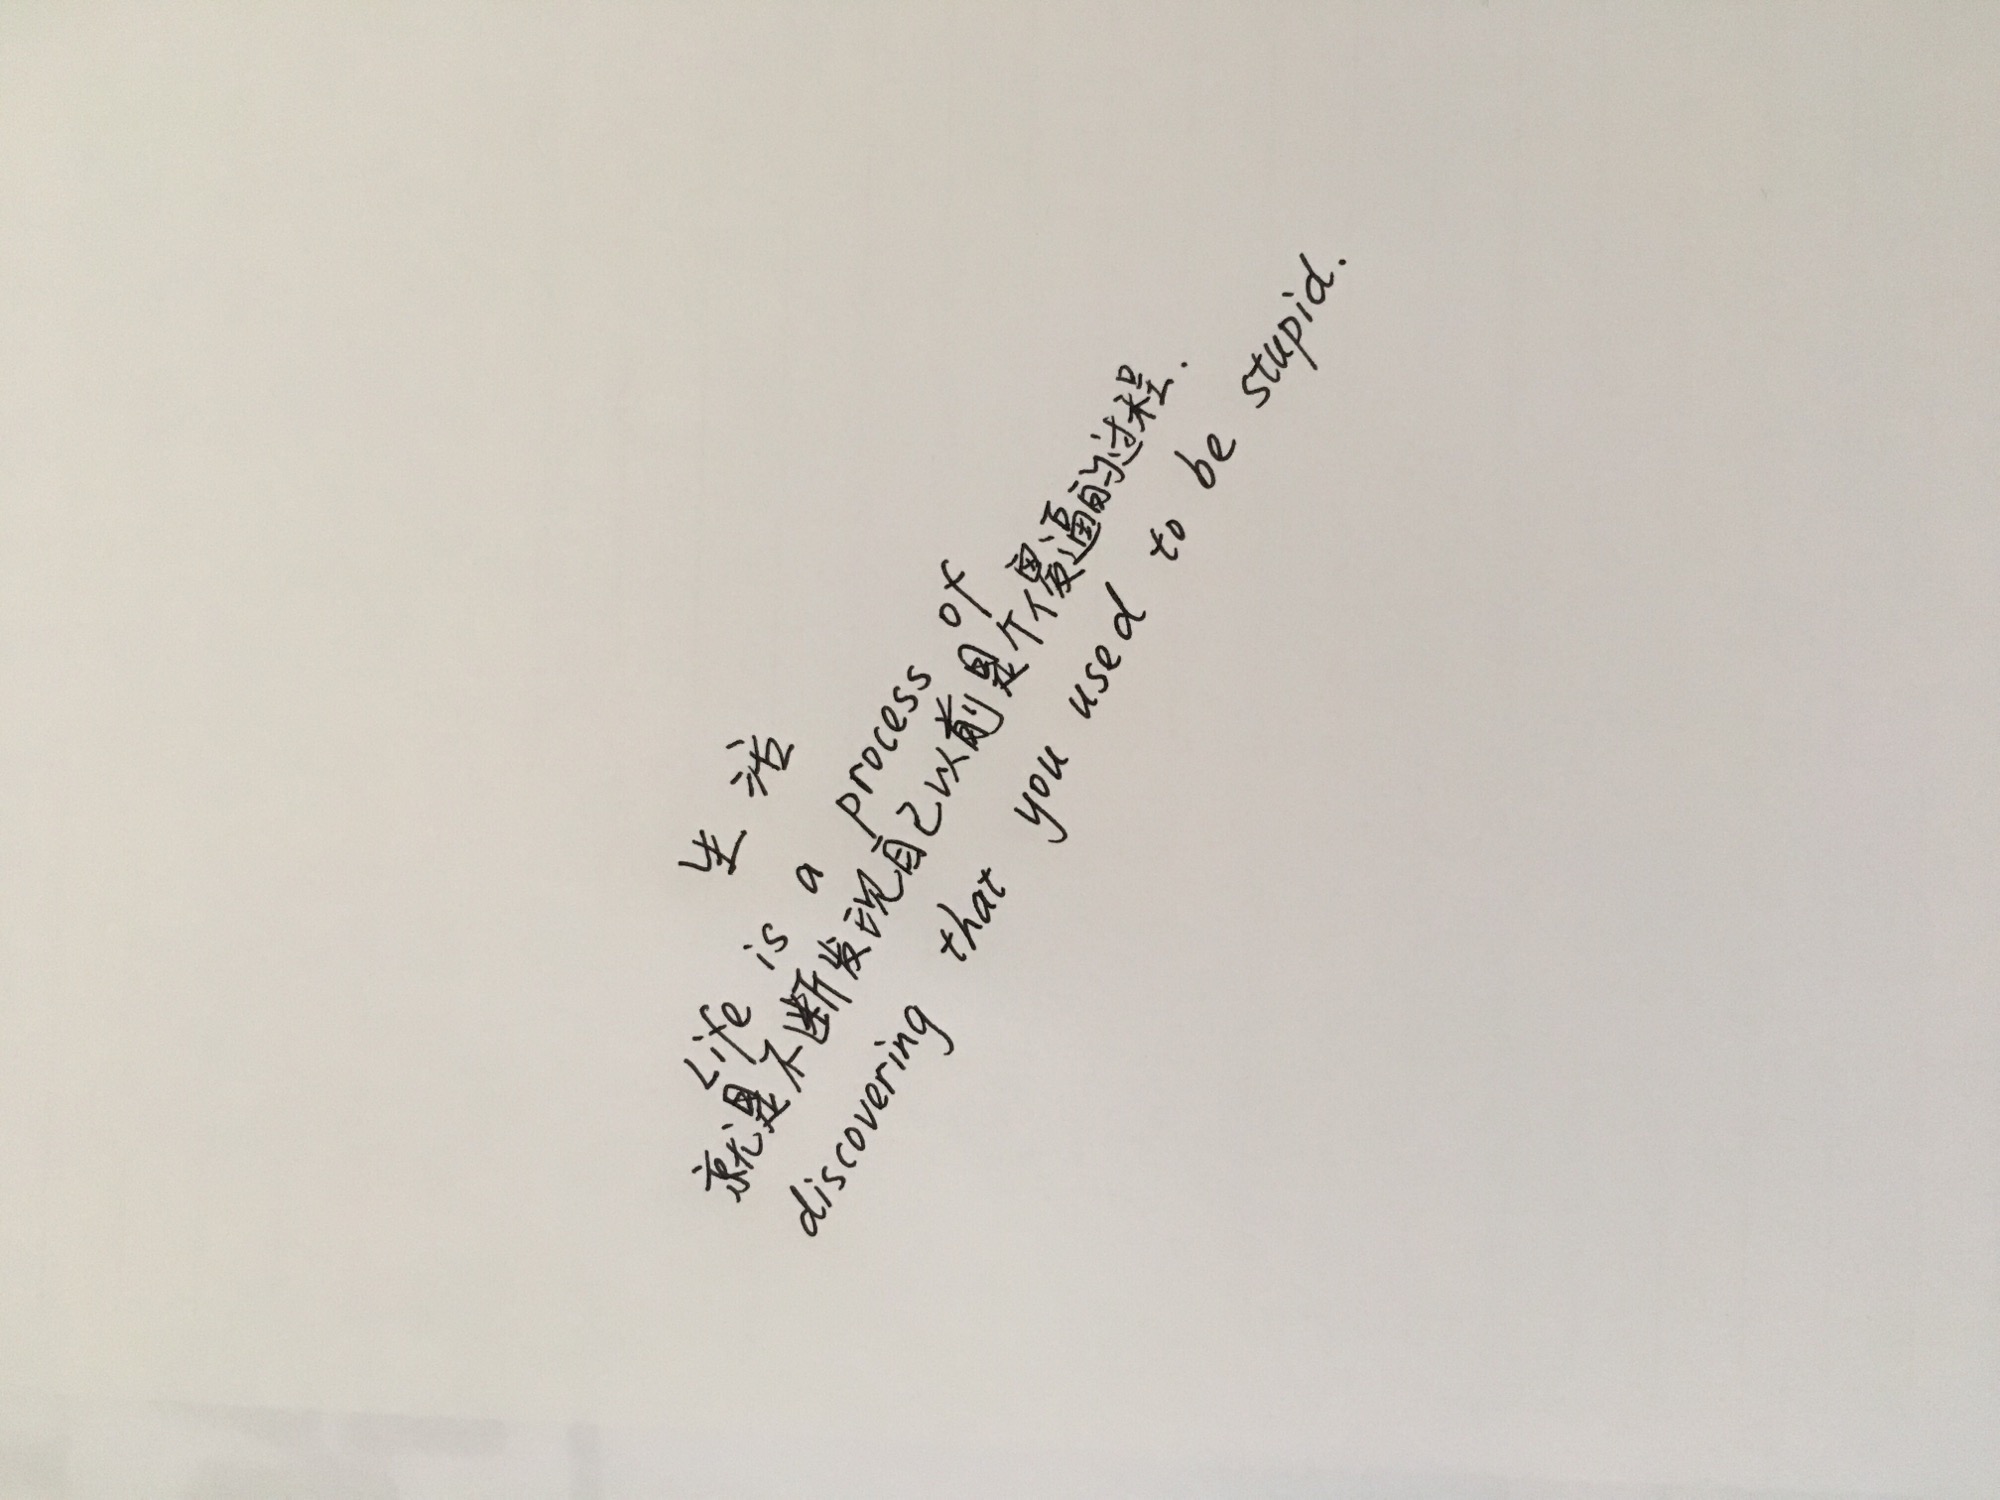 生活
Life is a process of
就是不断发现自己以前是个傻逼的过程.
discovering that you used to be stupid.